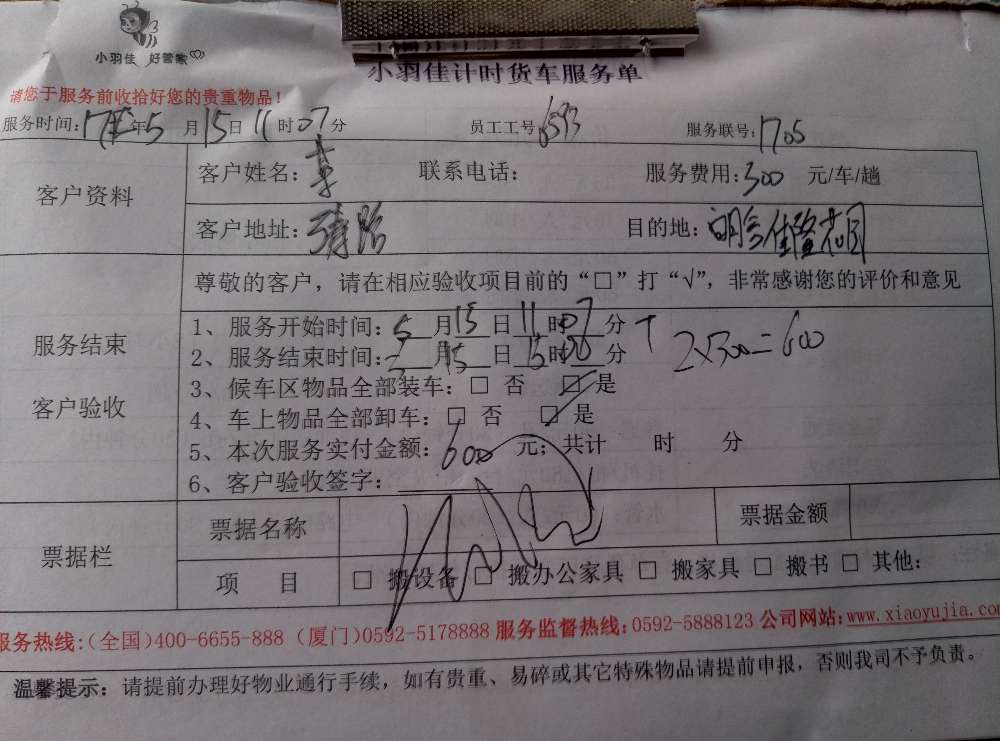 小羽佳 好管家
小羽佳计时货车服务单
请您于服务前收拾好您的贵重物品！
服务时间：17年5月15日11时07分 员工工号 服务联号：1705
客户资料
客户姓名：李 联系电话： 服务费用：300 元/车/趟
客户地址： 目的地：明发佳隆花园
尊敬的客户，请在相应验收项目前的“□”打“√”，非常感谢您的评价和意见
服务结束
客户验收
1、服务开始时间：5月15日11时07分
2、服务结束时间：5月15日15时00分
2×300=600
3、候车区物品全部装车：□ 否 ☑ 是
4、车上物品全部卸车：□ 否 ☑ 是
5、本次服务实付金额：600元；共计 时 分
6、客户验收签字：
票据栏
票据名称 票据金额
项 目 □ 搬设备 □ 搬办公家具 □ 搬家具 □ 搬书 □ 其他：
服务热线：(全国)400-6655-888 (厦门)0592-5178888 服务监督热线：0592-5888123 公司网站：www.xiaoyujia.com
温馨提示：请提前办理好物业通行手续，如有贵重、易碎或其它特殊物品请提前申报，否则我司不予负责。